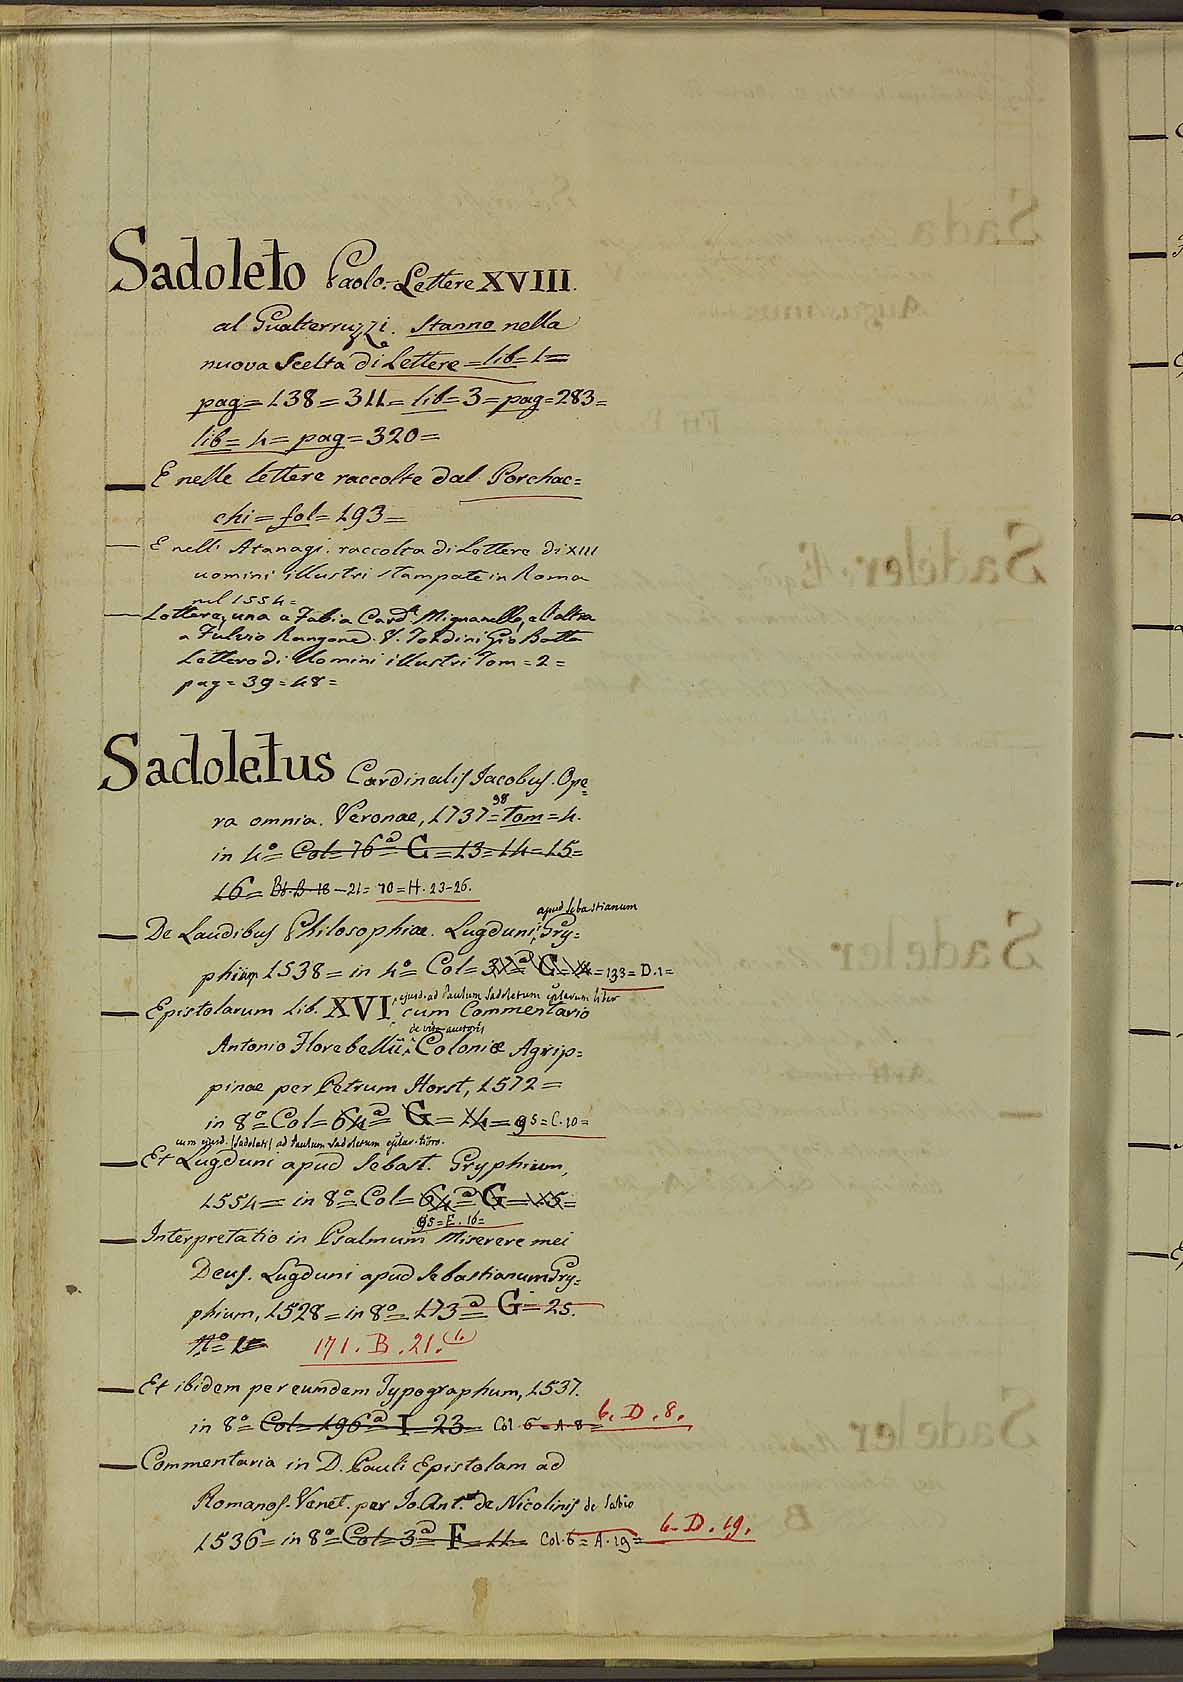 Sadoleto Paolo. Lettere XVIII.
al Gualterruzzi. Stanno nella
nuova Scelta di Lettere = lib = 1 =
pag = 138 = 311 = lib = 3 = pag = 283 =
lib = 4 = pag = 320 =
E nelle lettere raccolte dal Porchac=
chi = fol = 193 =
E nelli Atanagi. raccolta di Lettere di XIII
uomini illustri stampate in Roma
nel 1554 =
Lettere, una a Fabio Card. Mignanello, e l'altra
a Fulvio Rangone. V. Tordini Gio Batta
Lettere di Uomini illustri Tom = 2 =
pag = 39 = 48 =
Sadoletus Cardinalis Jacobus. Ope=
ra omnia. Veronae, 1737 = 38 Tom = 4.
in 4º = Col = 76ª = G = 13 = 14 = 15 =
16 = Bt. B. 18 — 21 = 70 = H. 23-26.
apud Sebastianum
De Laudibus Philosophiae. Lugduni, Gry=
phium 1538 = in 4º = Col = G = = 133 = D. 1 =
ejusd. ad Paulum Sadoletum eplarum liber
Epistolarum Lib. XVI, cum Commentario
de vita auctoris
Antonio Florebelli, Coloniae Agrip=
pinae per Petrum Horst, 1572 =
in 8º = Col = 64ª = G = 14 = 95 = C. 10 =
cum ejusd. (Sadoleti) ad Paulum Sadoletum eplar. libro.
Et Lugduni apud Sebast. Gryphium,
1554 = in 8º = Col = 64ª = G = 15 =
95 = E. 16 =
Interpretatio in Psalmum Miserere mei
Deus. Lugduni apud Sebastianum Gry=
phium, 1528 = in 8º = 173ª = G = 25.
Nº = 1 = 171. B. 21. (1.
Et ibidem per eumdem Typographum, 1537.
in 8º = Col = 196ª = I 23 = Col. 6 = A. 8 = 6. D. 8.
Commentaria in D. Pauli Epistolam ad
Romanos. Venet. per Jo. Ant.m de Nicolinis de Sabio
1536 = in 8º = Col = 3ª = F = 11 = Col. 6 = A. 19 = 6. D. 19.